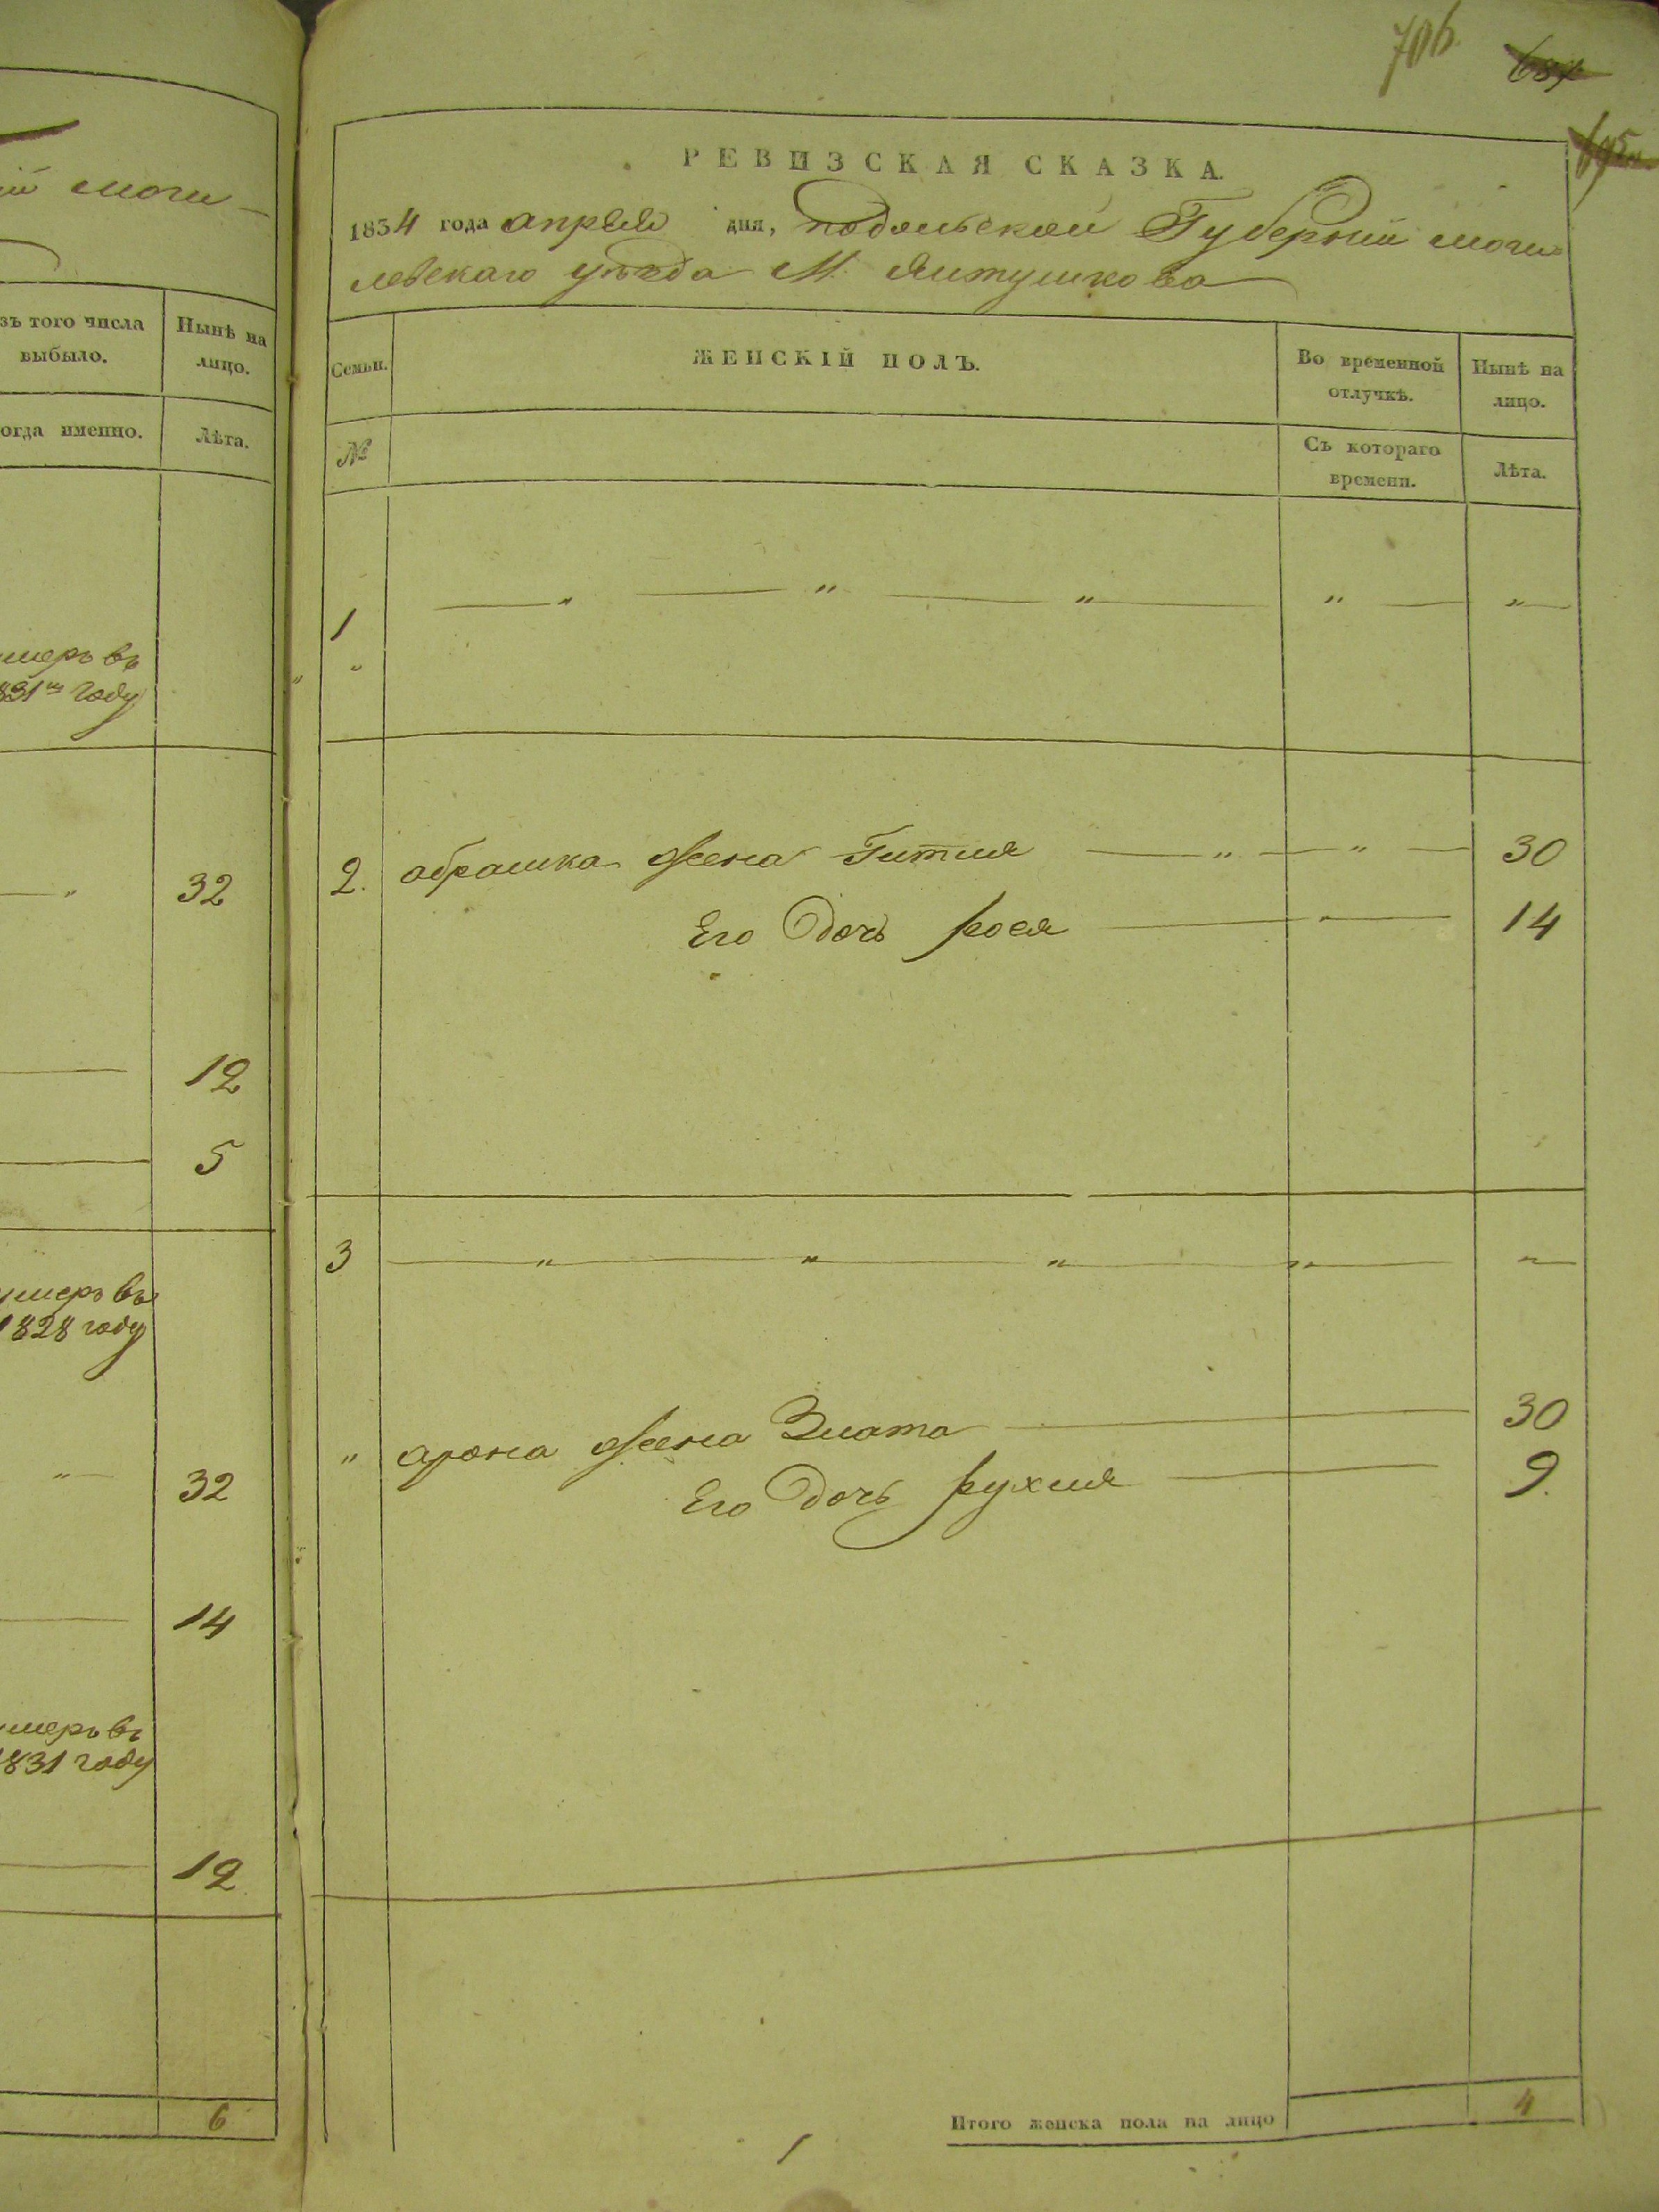 ій моги-
зъ того числа
выбыло.
Нынѣ на
лицо.
огда именно.
Лѣта.
умеръ въ
831мъ году
32
12
5
умеръ въ
1828 году
32
14
умеръ въ
831 году
12
6
706.
РЕВИЗСКАЯ СКАЗКА.
1834 года апреля дня, подольской Губерний моги-
левскаго уѣзда М. Ялтушкова
Семьи.
ЖЕНСКІЙ ПОЛЪ.
Во временной
отлучкѣ.
Нынѣ на
лицо.
№
Съ котораго
времени.
Лѣта.
1
2. абрашка жена Гитля 30
Его дочь рося 14
3
" арона жена Злата 30
Его дочь рухля 9.
Итого женска пола на лицо 4
1